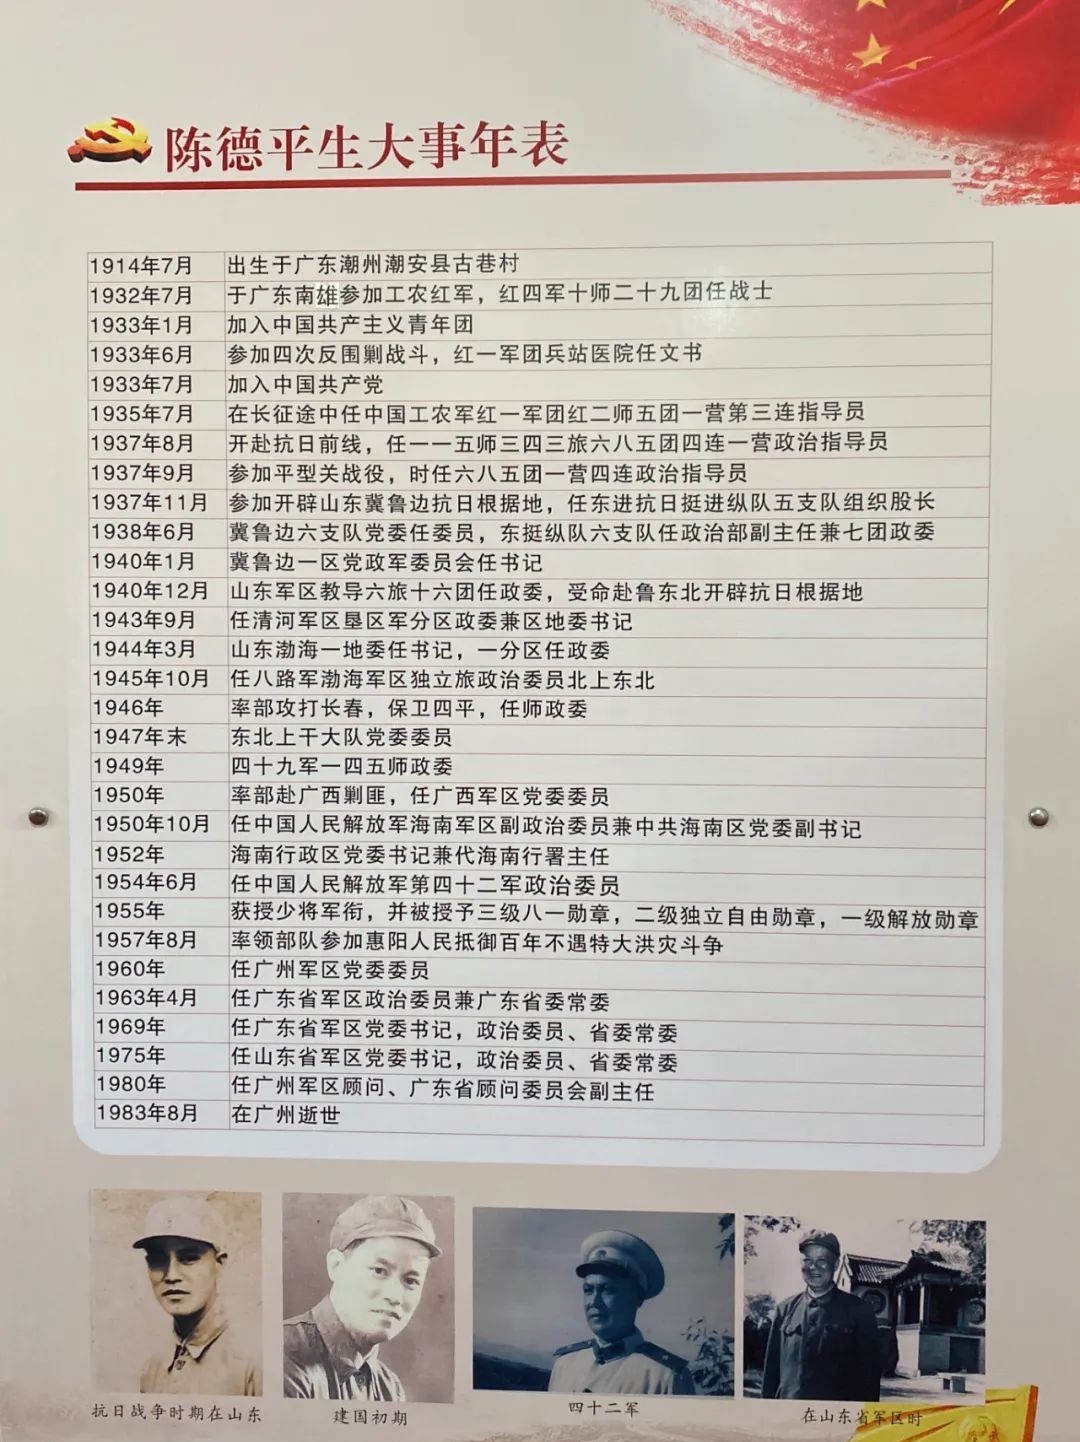 陈德平生大事年表
1914年7月 出生于广东潮州潮安县古巷村
1932年7月 于广东南雄参加工农红军，红四军十师二十九团任战士
1933年1月 加入中国共产主义青年团
1933年6月 参加四次反围剿战斗，红一军团兵站医院任文书
1933年7月 加入中国共产党
1935年7月 在长征途中任中国工农军红一军团红二师五团一营第三连指导员
1937年8月 开赴抗日前线，任一一五师三四三旅六八五团四连一营政治指导员
1937年9月 参加平型关战役，时任六八五团一营四连政治指导员
1937年11月 参加开辟山东冀鲁边抗日根据地，任东进抗日挺进纵队五支队组织股长
1938年6月 冀鲁边六支队党委任委员，东挺纵队六支队任政治部副主任兼七团政委
1940年1月 冀鲁边一区党政军委员会任书记
1940年12月 山东军区教导六旅十六团任政委，受命赴鲁东北开辟抗日根据地
1943年9月 任清河军区垦区军分区政委兼区地委书记
1944年3月 山东渤海一地委任书记，一分区任政委
1945年10月 任八路军渤海军区独立旅政治委员北上东北
1946年 率部攻打长春，保卫四平，任师政委
1947年末 东北上干大队党委委员
1949年 四十九军一四五师政委
1950年 率部赴广西剿匪，任广西军区党委委员
1950年10月 任中国人民解放军海南军区副政治委员兼中共海南区党委副书记
1952年 海南行政区党委书记兼代海南行署主任
1954年6月 任中国人民解放军第四十二军政治委员
1955年 获授少将军衔，并被授予三级八一勋章，二级独立自由勋章，一级解放勋章
1957年8月 率领部队参加惠阳人民抵御百年不遇特大洪灾斗争
1960年 任广州军区党委委员
1963年4月 任广东省军区政治委员兼广东省委常委
1969年 任广东省军区党委书记，政治委员、省委常委
1975年 任山东省军区党委书记，政治委员、省委常委
1980年 任广州军区顾问、广东省顾问委员会副主任
1983年8月 在广州逝世
抗日战争时期在山东
建国初期
四十二军
在山东省军区时